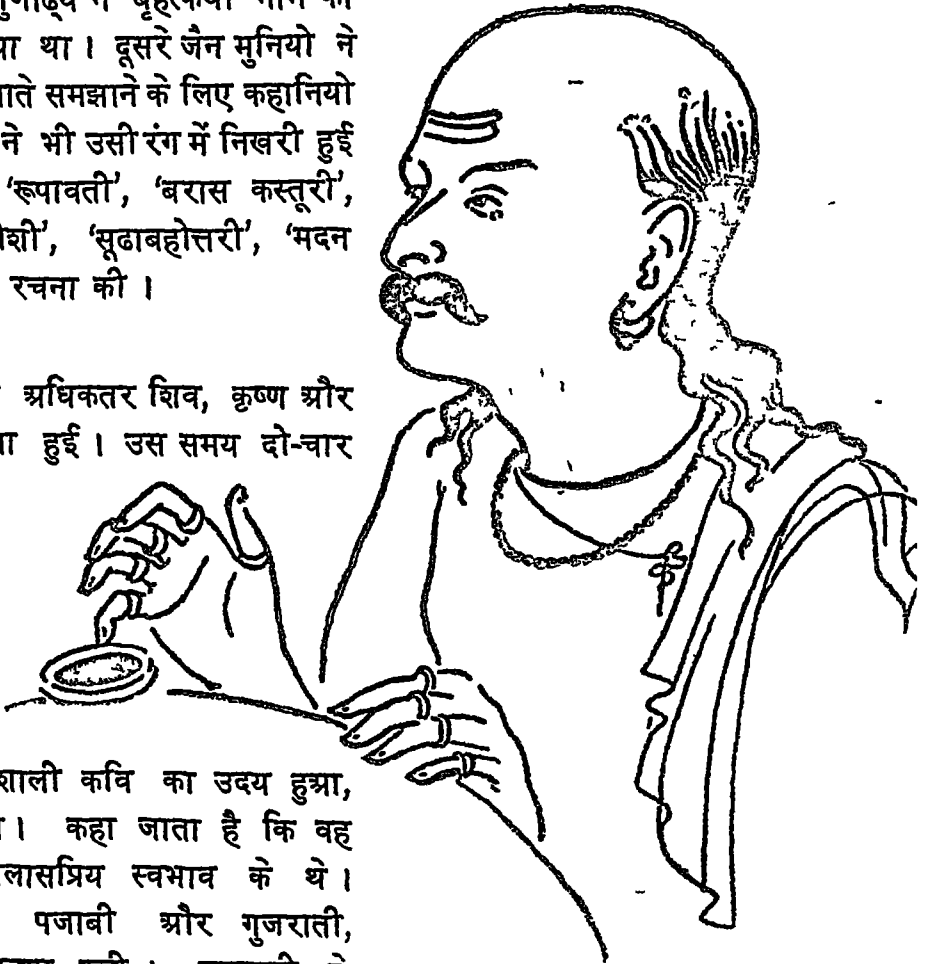 ने बृहत्कथा नाम की
था । दूसरे जैन मुनियो ने
समझाने के लिए कहानियो
ने भी उसी रंग में निखरी हुई
‘रूपावती’, ‘बरास कस्तूरी’,
‘सूढाबहोत्तरी’, ‘मदन
रचना की ।
अधिकतर शिव, कृष्ण और
हुई । उस समय दो-चार
शाली कवि का उदय हुआ,
। कहा जाता है कि वह
लासप्रिय स्वभाव के थे ।
पजाबी और गुजराती,